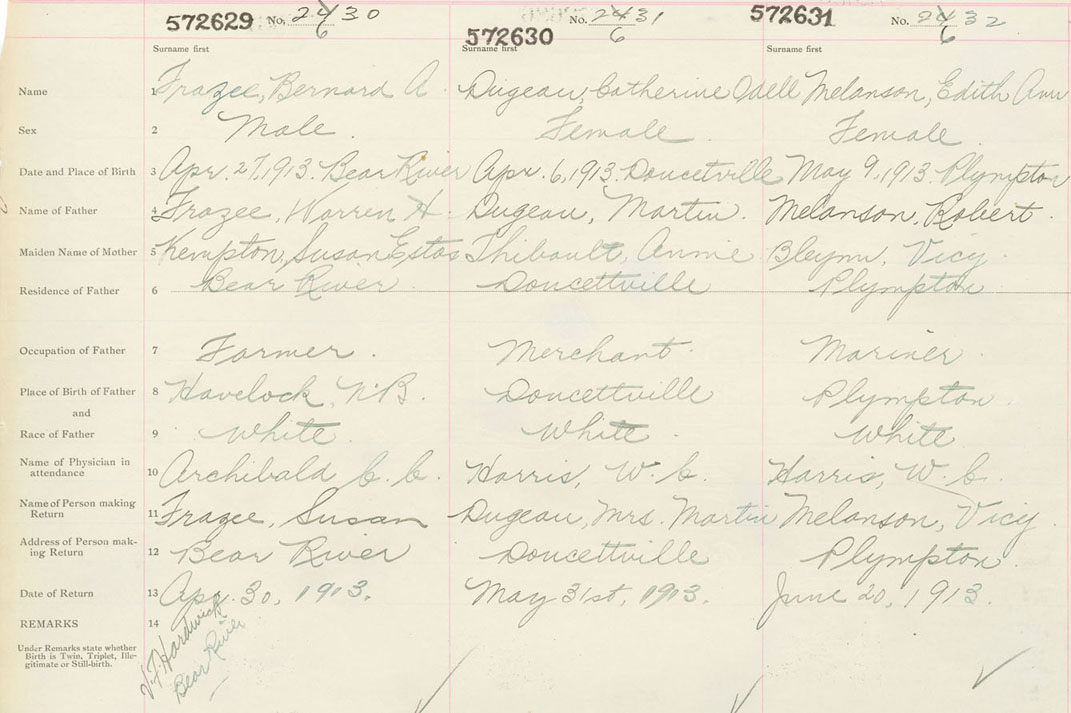 572629 No. 30 572630 No. 31 572631 No. 32
6 6 6
Surname first Surname first Surname first
Name 1 Frazee, Bernard A. Dugeau, Catherine Odell Melanson, Edith Ann
Sex 2 Male. Female. Female.
Date and Place of Birth 3 Apr. 27, 1913. Bear River Apr. 6, 1913. Doucetville May 9, 1913 Plympton
Name of Father 4 Frazee, Warren H. Dugeau, Martin. Melanson, Robert.
Maiden Name of Mother 5 Kempton, Susan Estas Thibault, Annie Bleynn, Vicy.
Residence of Father 6 Bear River Doucettville Plympton
Occupation of Father 7 Farmer. Merchant. Mariner.
Place of Birth of Father 8 Havelock, N.B. Doucettville Plympton.
and
Race of Father 9 White. White. White
Name of Physician in
attendance 10 Archibald C. C. Harris, W. C. Harris, W. C.
Name of Person making
Return 11 Frazee, Susan Dugeau, Mrs. Martin Melanson, Vicy.
Address of Person mak-
ing Return 12 Bear River Doucettville Plympton.
Date of Return 13 Apr. 30, 1913. May 31st, 1913. June 20, 1913.
REMARKS 14
Under Remarks state whether
Birth is Twin, Triplet, Ille-
gitimate or Still-birth.
V. F. Hardwick
Bear River